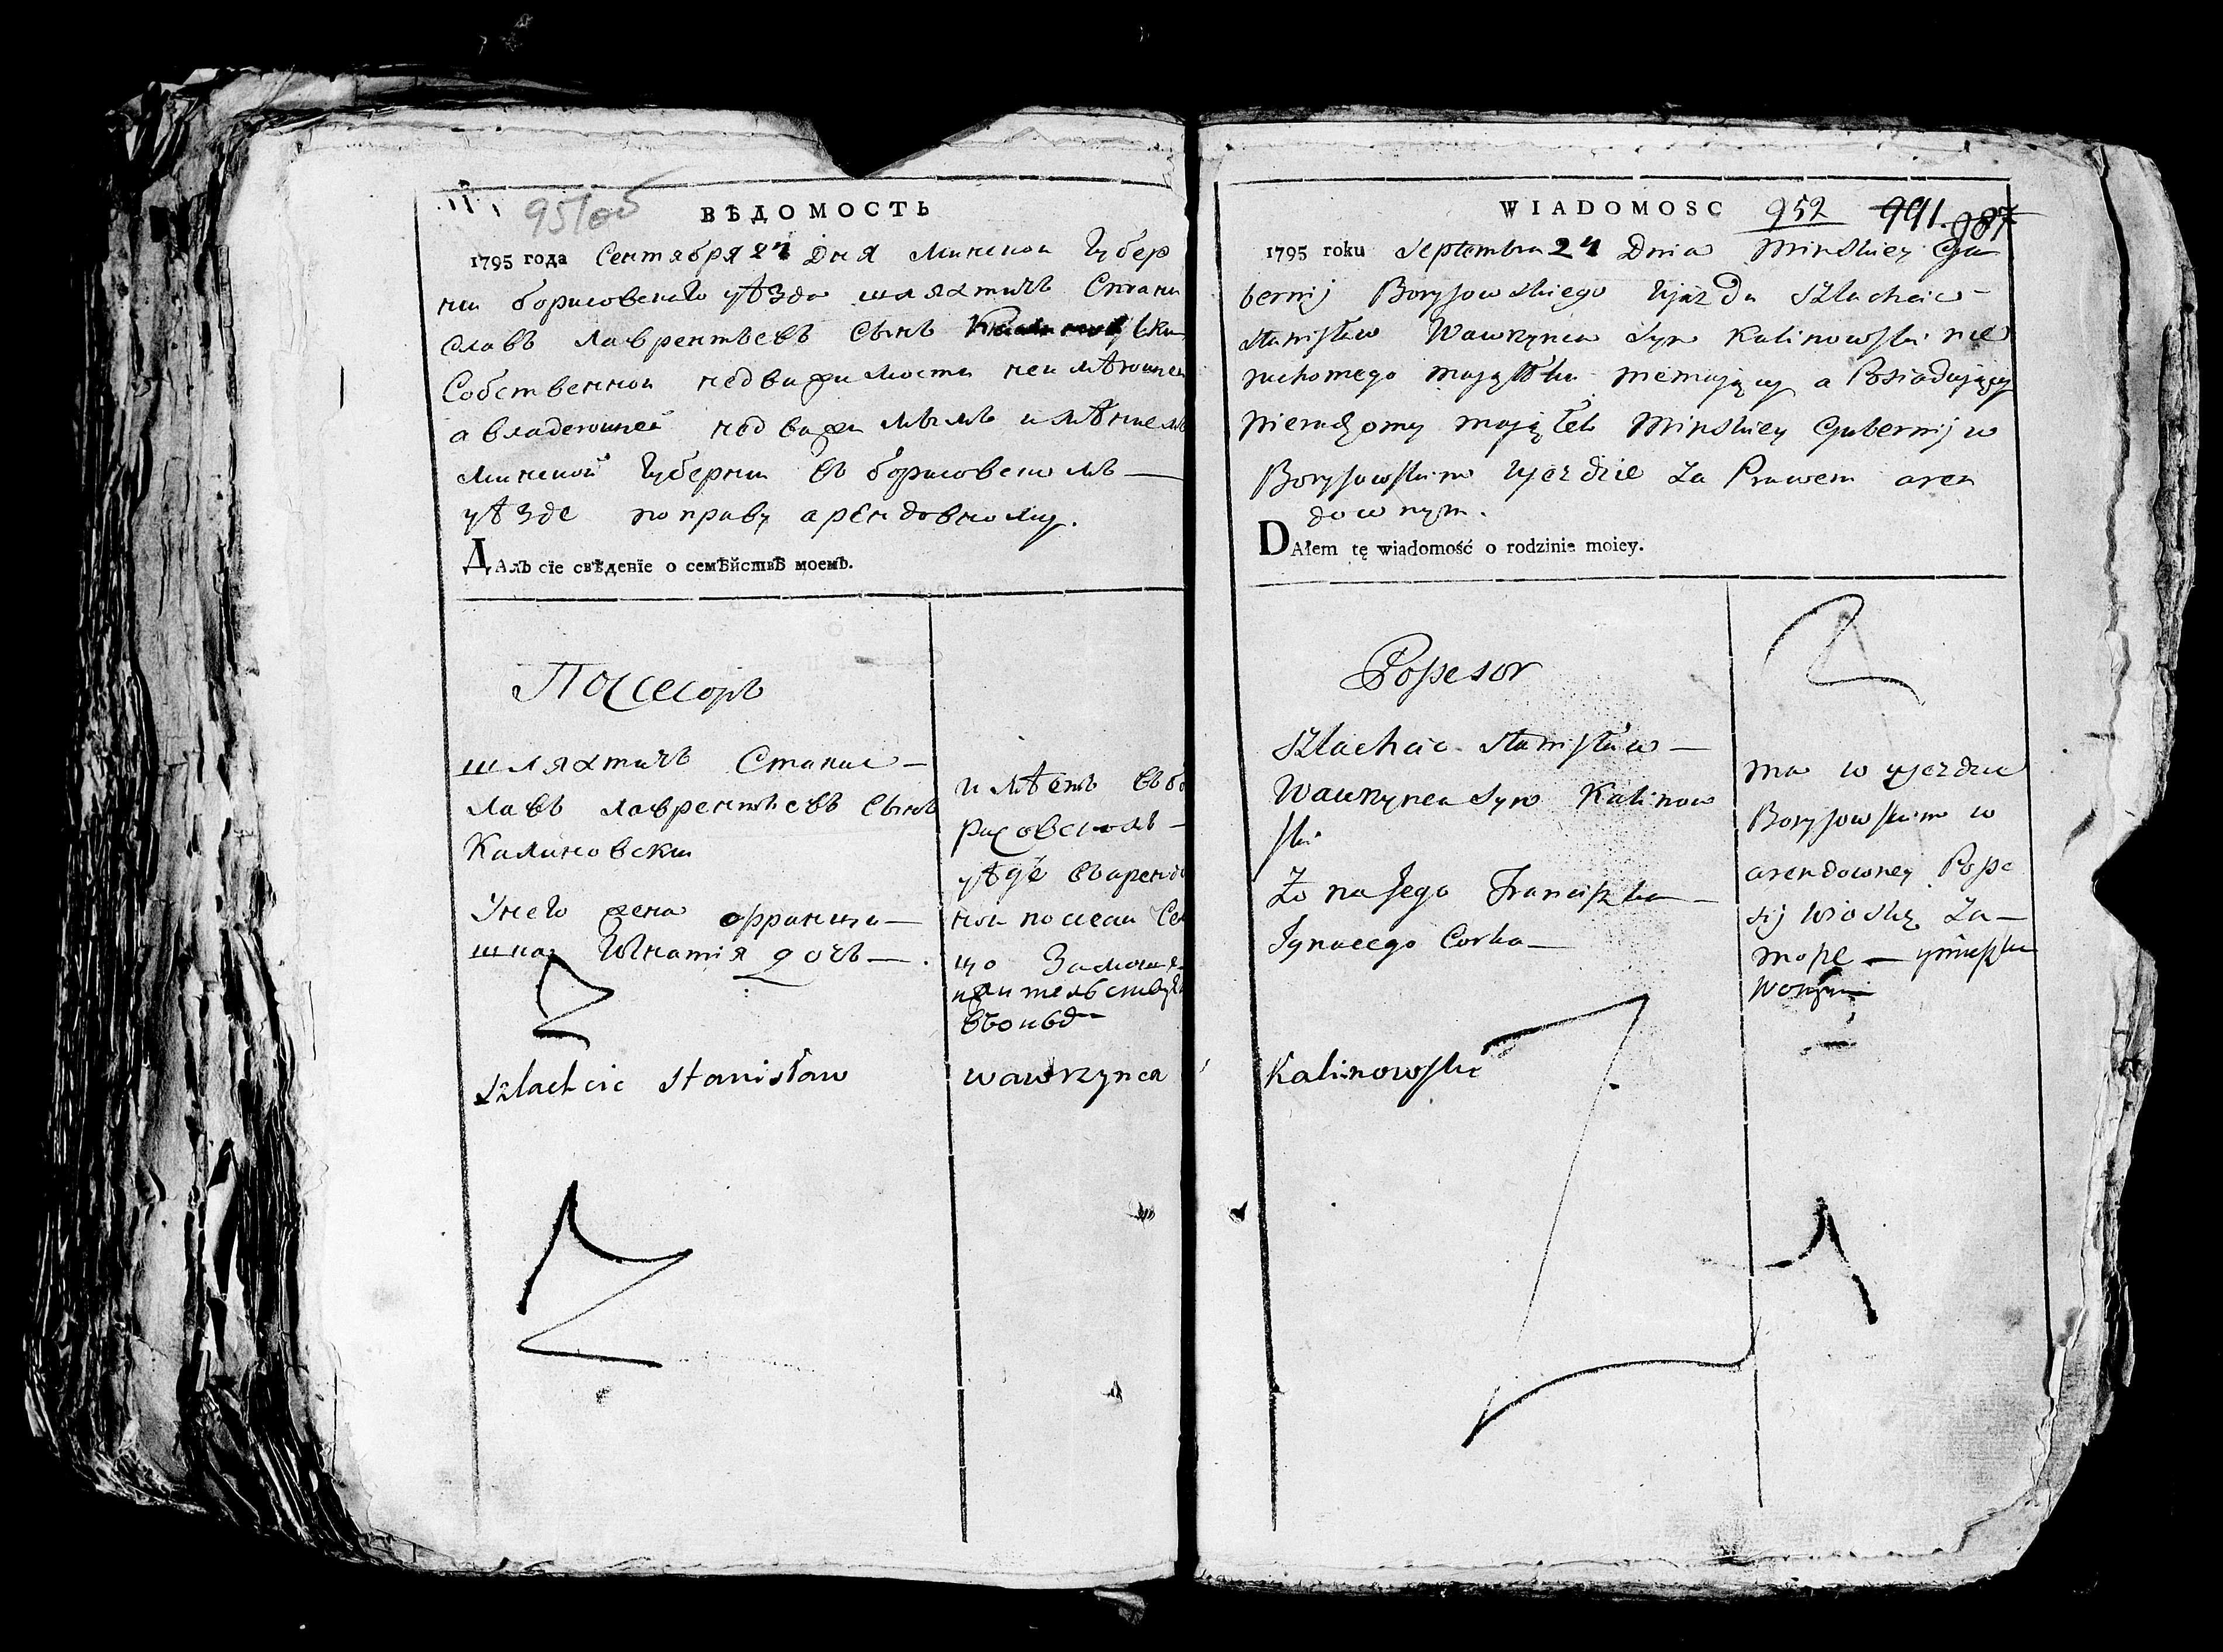 951об
ВѢДОМОСТЬ
1795 года Сентября 24 Дня Минской Губер
нии борисовского уѣзда шляхтичъ Стани
славъ лаврентьевъ сынъ
Собственной недвижимости неимѣющей
а владеющей недвижимымъ имѣниемъ
Минской Губернии въ борисовскомъ —
уѣзде по праву арендовному.
ДАлъ сїе свѣденїе о семѣйствѣ моемъ.
Поссесоръ
шляхтичъ Станис —
лавъ лаврентьевъ сынъ
Калиновски
Унего жена францы —
шка Игнатія дочь — .
имѣетъ въ бо
рисовскомъ —
уѣзде въ аренд
ной посесии Се
цо
жительству
Szlachcic Stanisław
wawrzynca
WIADOMOSC 952 991. 987
1795 roku Septembra 24 Dnia Minskiey Gu
bernij Borysowskiego Ujazdu Szlachcic —
Stanisław Wawrzynca Syn Kalinowski nie
ruchomego majątku niemający a Posiadający
nieruchomy majątek Minskiey Gubernij w
Borysowskim Ujezdzie za Prawem aren
downym.
DAłem tę wiadomość o rodzinie moiey.
Possesor
Szlachcic Stanisław —
Wawrzynca Syn Kalinow
ski
Zona Jego Franciszka —
Ignacego Corka —
ma w ujezdzie
Borysowskim w
arendowney Posse
sij wioskę Za —
mosze —
Kalinowski